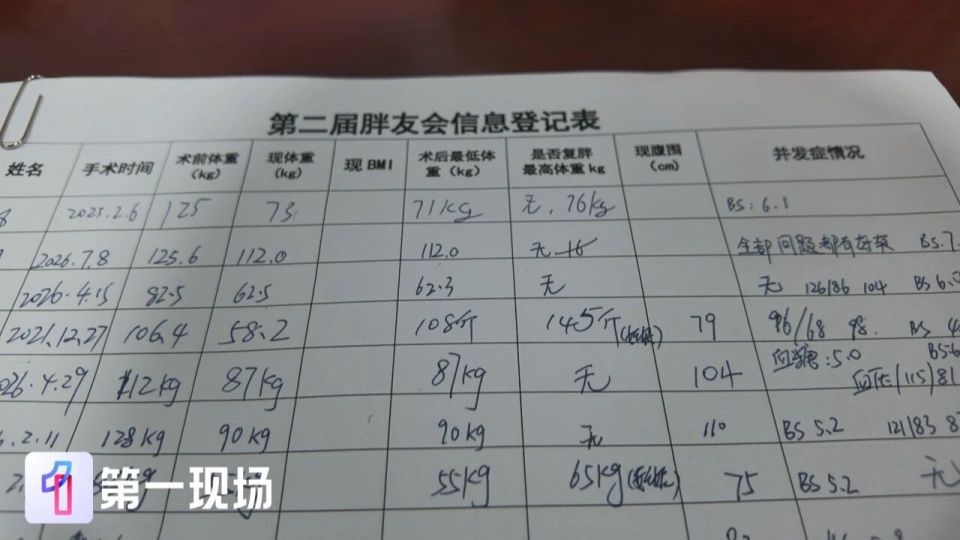 第二届胖友会信息登记表
姓名 手术时间 术前体重(kg) 现体重(kg) 现BMI 术后最低体重(kg) 是否复胖最高体重kg 现腹围(cm) 并发症情况
2023.2.6 125 73 71kg 无，76kg BS: 6.1
2026.7.8 125.6 112.0 112.0 无 BS.7.
2026.4.15 82.5 62.5 62.3 无 无 126/86 104 BS 6.0
2021.12.27 106.4 58.2 108斤 145斤 79 96/68 98. BS 4
026.4.29 112kg 87kg 87kg 无 104 血糖:5.0 血压(115)81
.2.11 128kg 90kg 90kg 无 110 BS 5.2 121/83
55kg 65kg 75 BS 5.2 无
第一现场